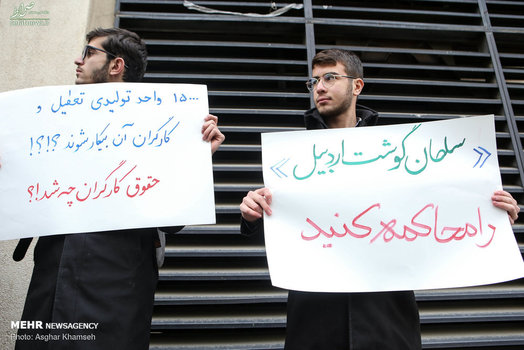 ۱۵۰۰ واحد تولیدی تعطیل و
کارگران آن بیکار شوند ؟!؟!
حقوق کارگران چه شد!؟
« سلطان گوشت اردبیل »
را محاکمه کنید
MEHR NEWSAGENCY
Photo: Asghar Khamseh